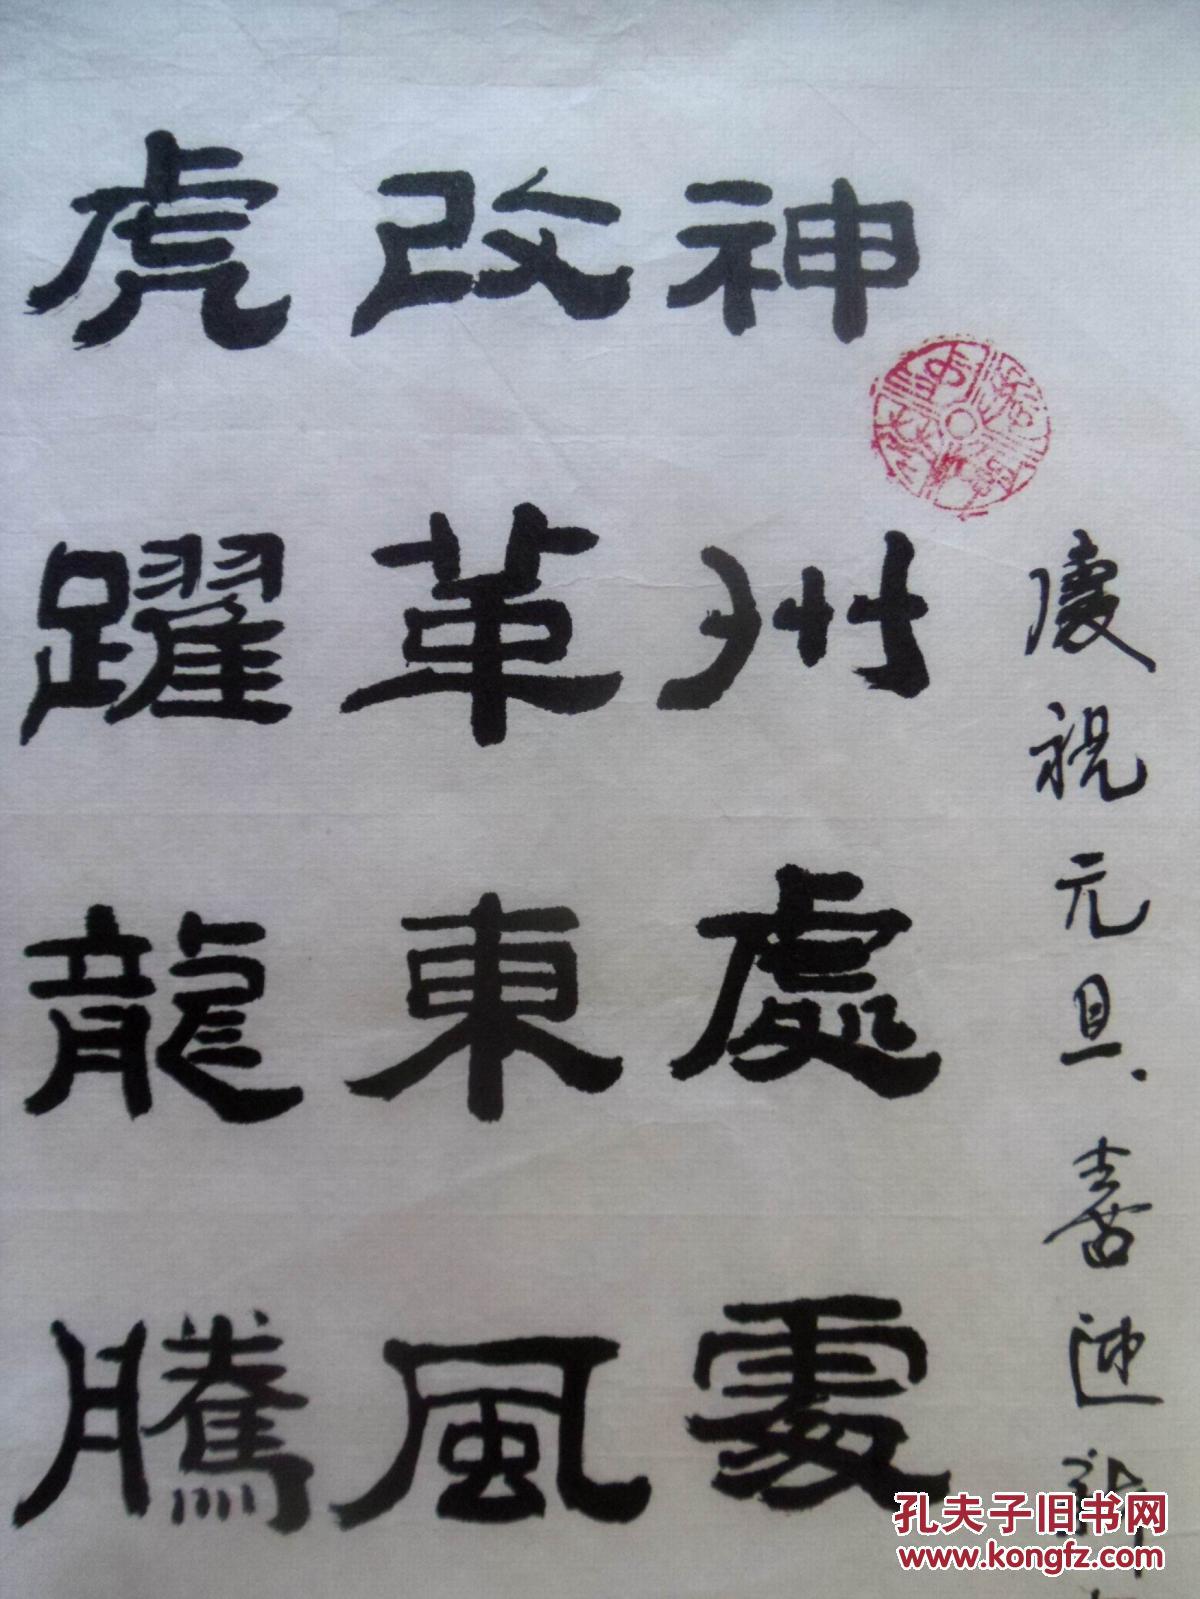 慶祝元旦.喜迎新
神州處處
改革東風
虎躍龍騰
孔夫子旧书网
www.kongfz.com